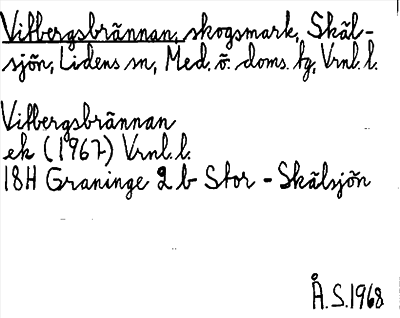 Vitbergsbrännan, skogsmark, Skäl-
sjön, Lidens sn, Med. ö. doms. fg, Vrnl. l.
Vitbergsbrännan
ek (1967) Vrnl. l.
18H Graninge 2 b Stor-Skälsjön
Å.S.1968